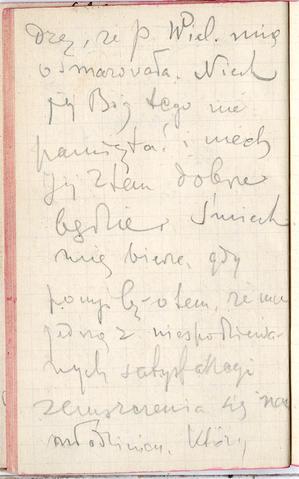 że p. Wiel. mię
osmarowała. Niech
jej Bóg tego nie
pamięta i niech
jej z tem dobrze
będzie. Śmiech
mię bierze, gdy
pomyślę o tem, że
jedną z niespodziewa-
nych satysfakcyi
zemszczenia się na
młodzieńcu, który